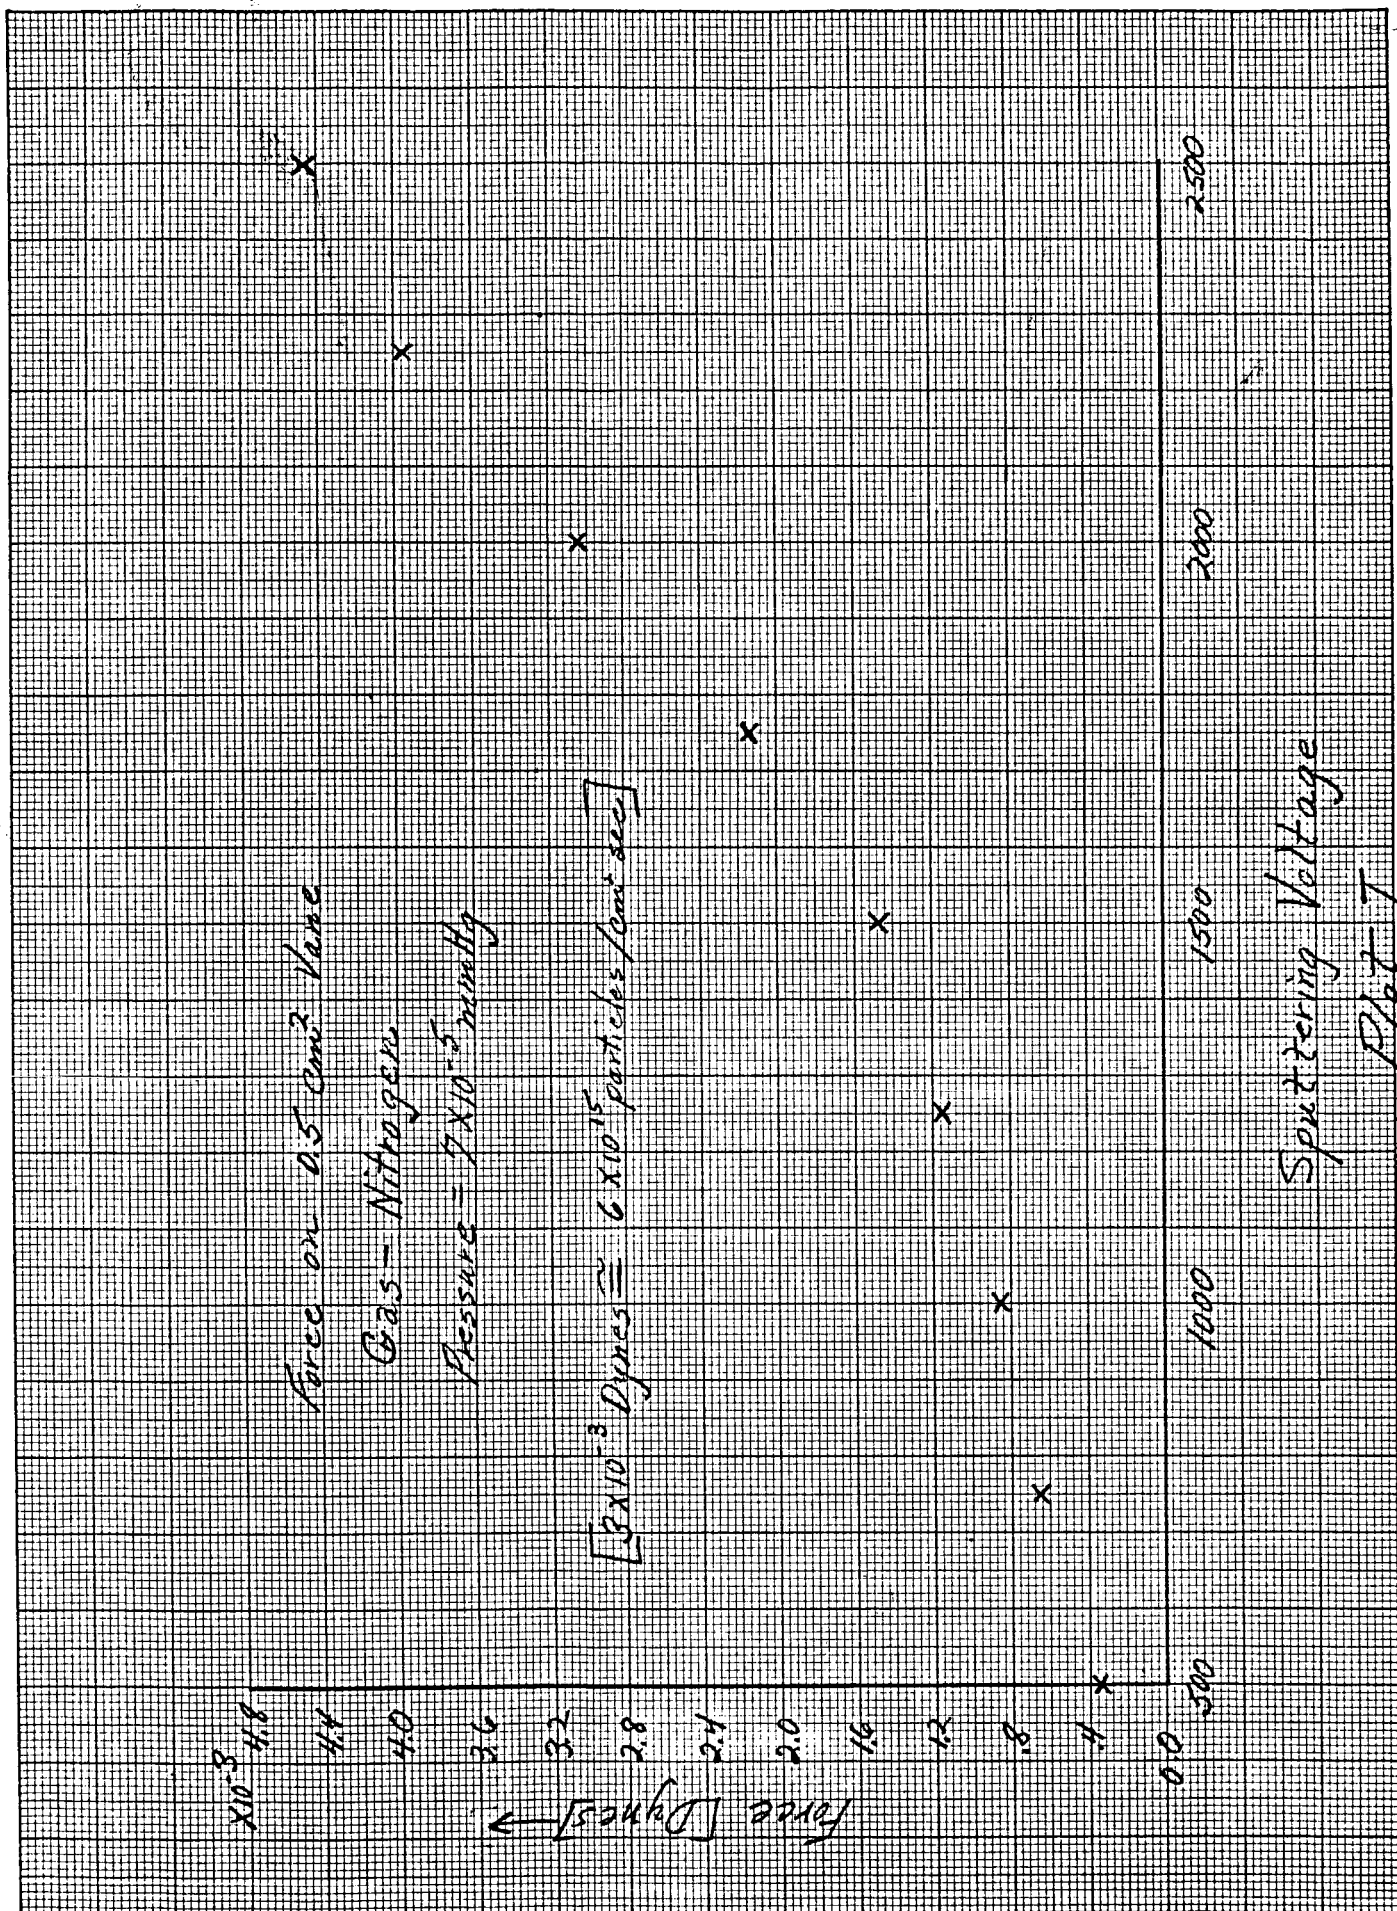 Force on 0.5 Cm² Vane
Gas - Nitrogen
Pressure = 7 X 10⁻⁵ mmHg
[3X10⁻³ Dynes ≅ 6 X10¹⁵ particles/cm² sec]
X10⁻³
4.8
4.4
4.0
3.6
3.2
2.8
2.4
2.0
1.6
1.2
.8
.4
0.0
Force [Dynes] →
500 1000 1500 2000 2500
Sputtering Voltage
Plot - I